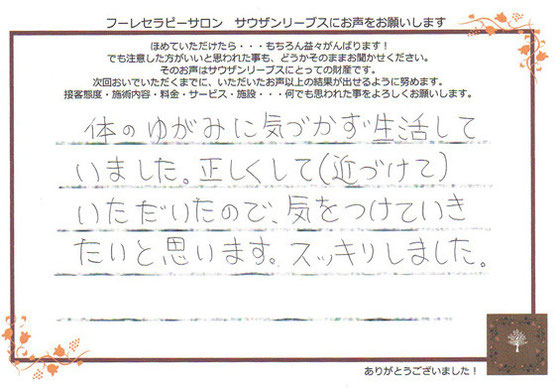 フーレセラピーサロン　サウザンリーブスにお声をお願いします
ほめていただけたら・・・もちろん益々がんばります！
でも注意した方がいいと思われた事も、どうかそのままお聞かせください。
そのお声はサウザンリーブスにとっての財産です。
次回おいでいただくまでに、いただいたお声以上の結果が出せるように努めます。
接客態度・施術内容・料金・サービス・施設・・・何でも思われた事をよろしくお願いします。
体のゆがみに気づかず生活して
いました。正しくして(近づけて)
いただいたので、気をつけていき
たいと思います。スッキリしました。
ありがとうございました！